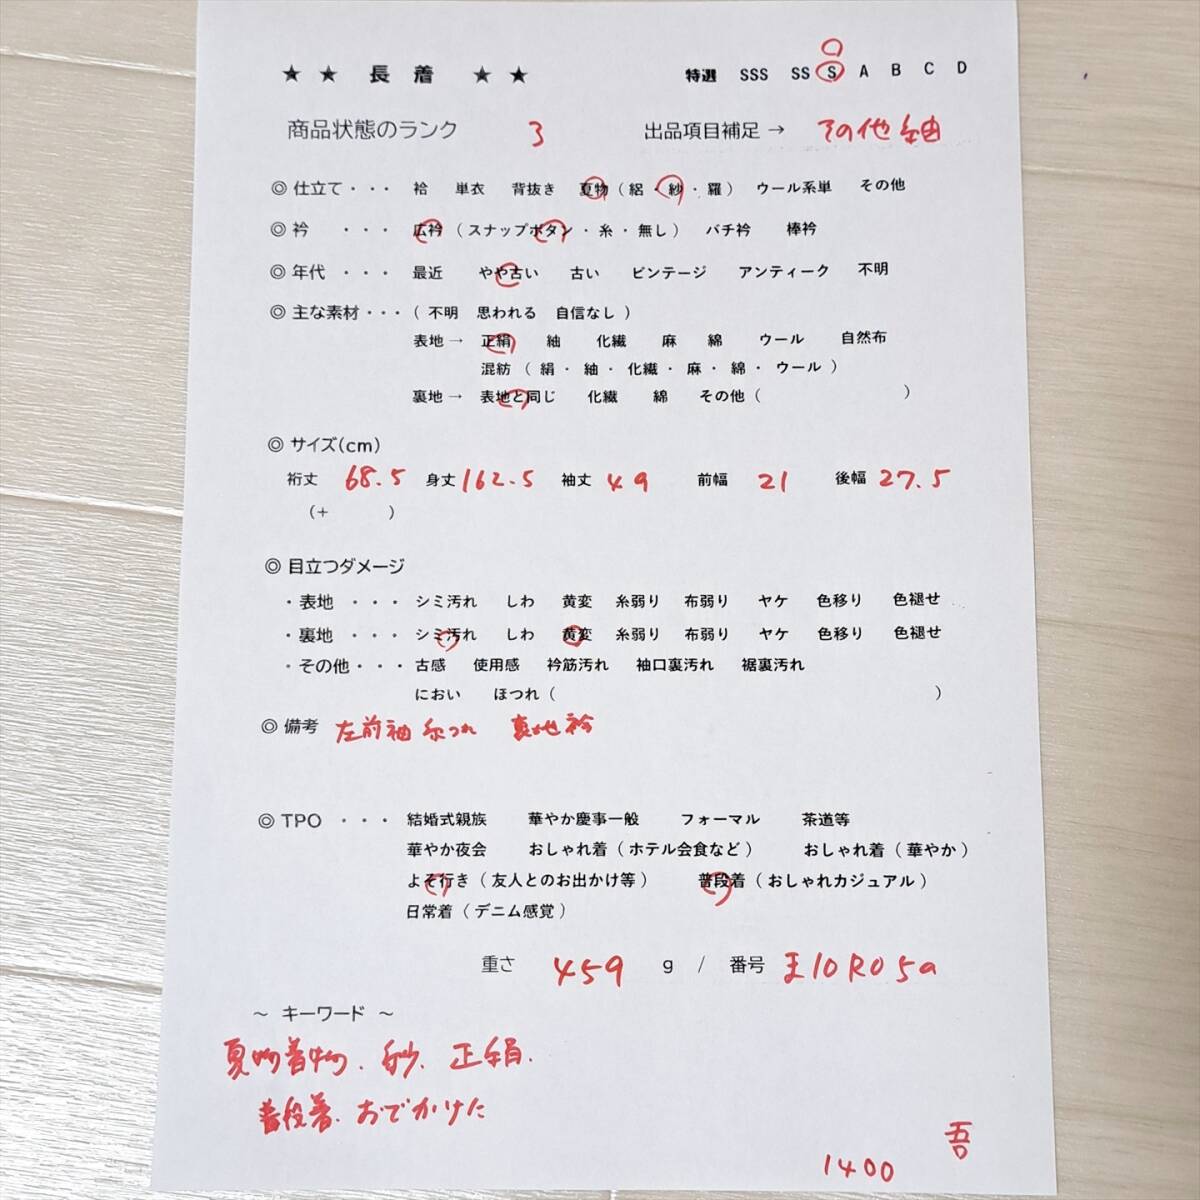 ★ ★ 長 着 ★ ★ 特選 SSS SS S A B C D
商品状態のランク 3 出品項目補足 → その他紬
◎ 仕立て・・・ 袷 単衣 背抜き 夏物（絽・紗・羅） ウール系単 その他
◎ 衿 ・・・ 広衿（スナップボタン・糸・無し） バチ衿 棒衿
◎ 年代 ・・・ 最近 やや古い 古い ビンテージ アンティーク 不明
◎ 主な素材・・・（ 不明 思われる 自信なし ）
表地 → 正絹 紬 化繊 麻 綿 ウール 自然布
混紡（ 絹・紬・化繊・麻・綿・ウール ）
裏地 → 表地と同じ 化繊 綿 その他（ ）
◎ サイズ(cm)
裄丈 68.5 身丈 162.5 袖丈 49 前幅 21 後幅 27.5
（＋ ）
◎ 目立つダメージ
・表地 ・・・ シミ汚れ しわ 黄変 糸弱り 布弱り ヤケ 色移り 色褪せ
・裏地 ・・・ シミ汚れ しわ 黄変 糸弱り 布弱り ヤケ 色移り 色褪せ
・その他・・・ 古感 使用感 衿筋汚れ 袖口裏汚れ 裾裏汚れ
におい ほつれ（ ）
◎ 備考 左前袖 糸つれ 裏地衿
◎ TPO ・・・ 結婚式親族 華やか慶事一般 フォーマル 茶道等
華やか夜会 おしゃれ着（ホテル会食など） おしゃれ着（華やか）
よそ行き（友人とのお出かけ等） 普段着（おしゃれカジュアル）
日常着（デニム感覚）
重さ 459 g / 番号 王10R05a
～ キーワード ～
夏物着物、紗、正絹、
普段着、おでかけに
吾
1400